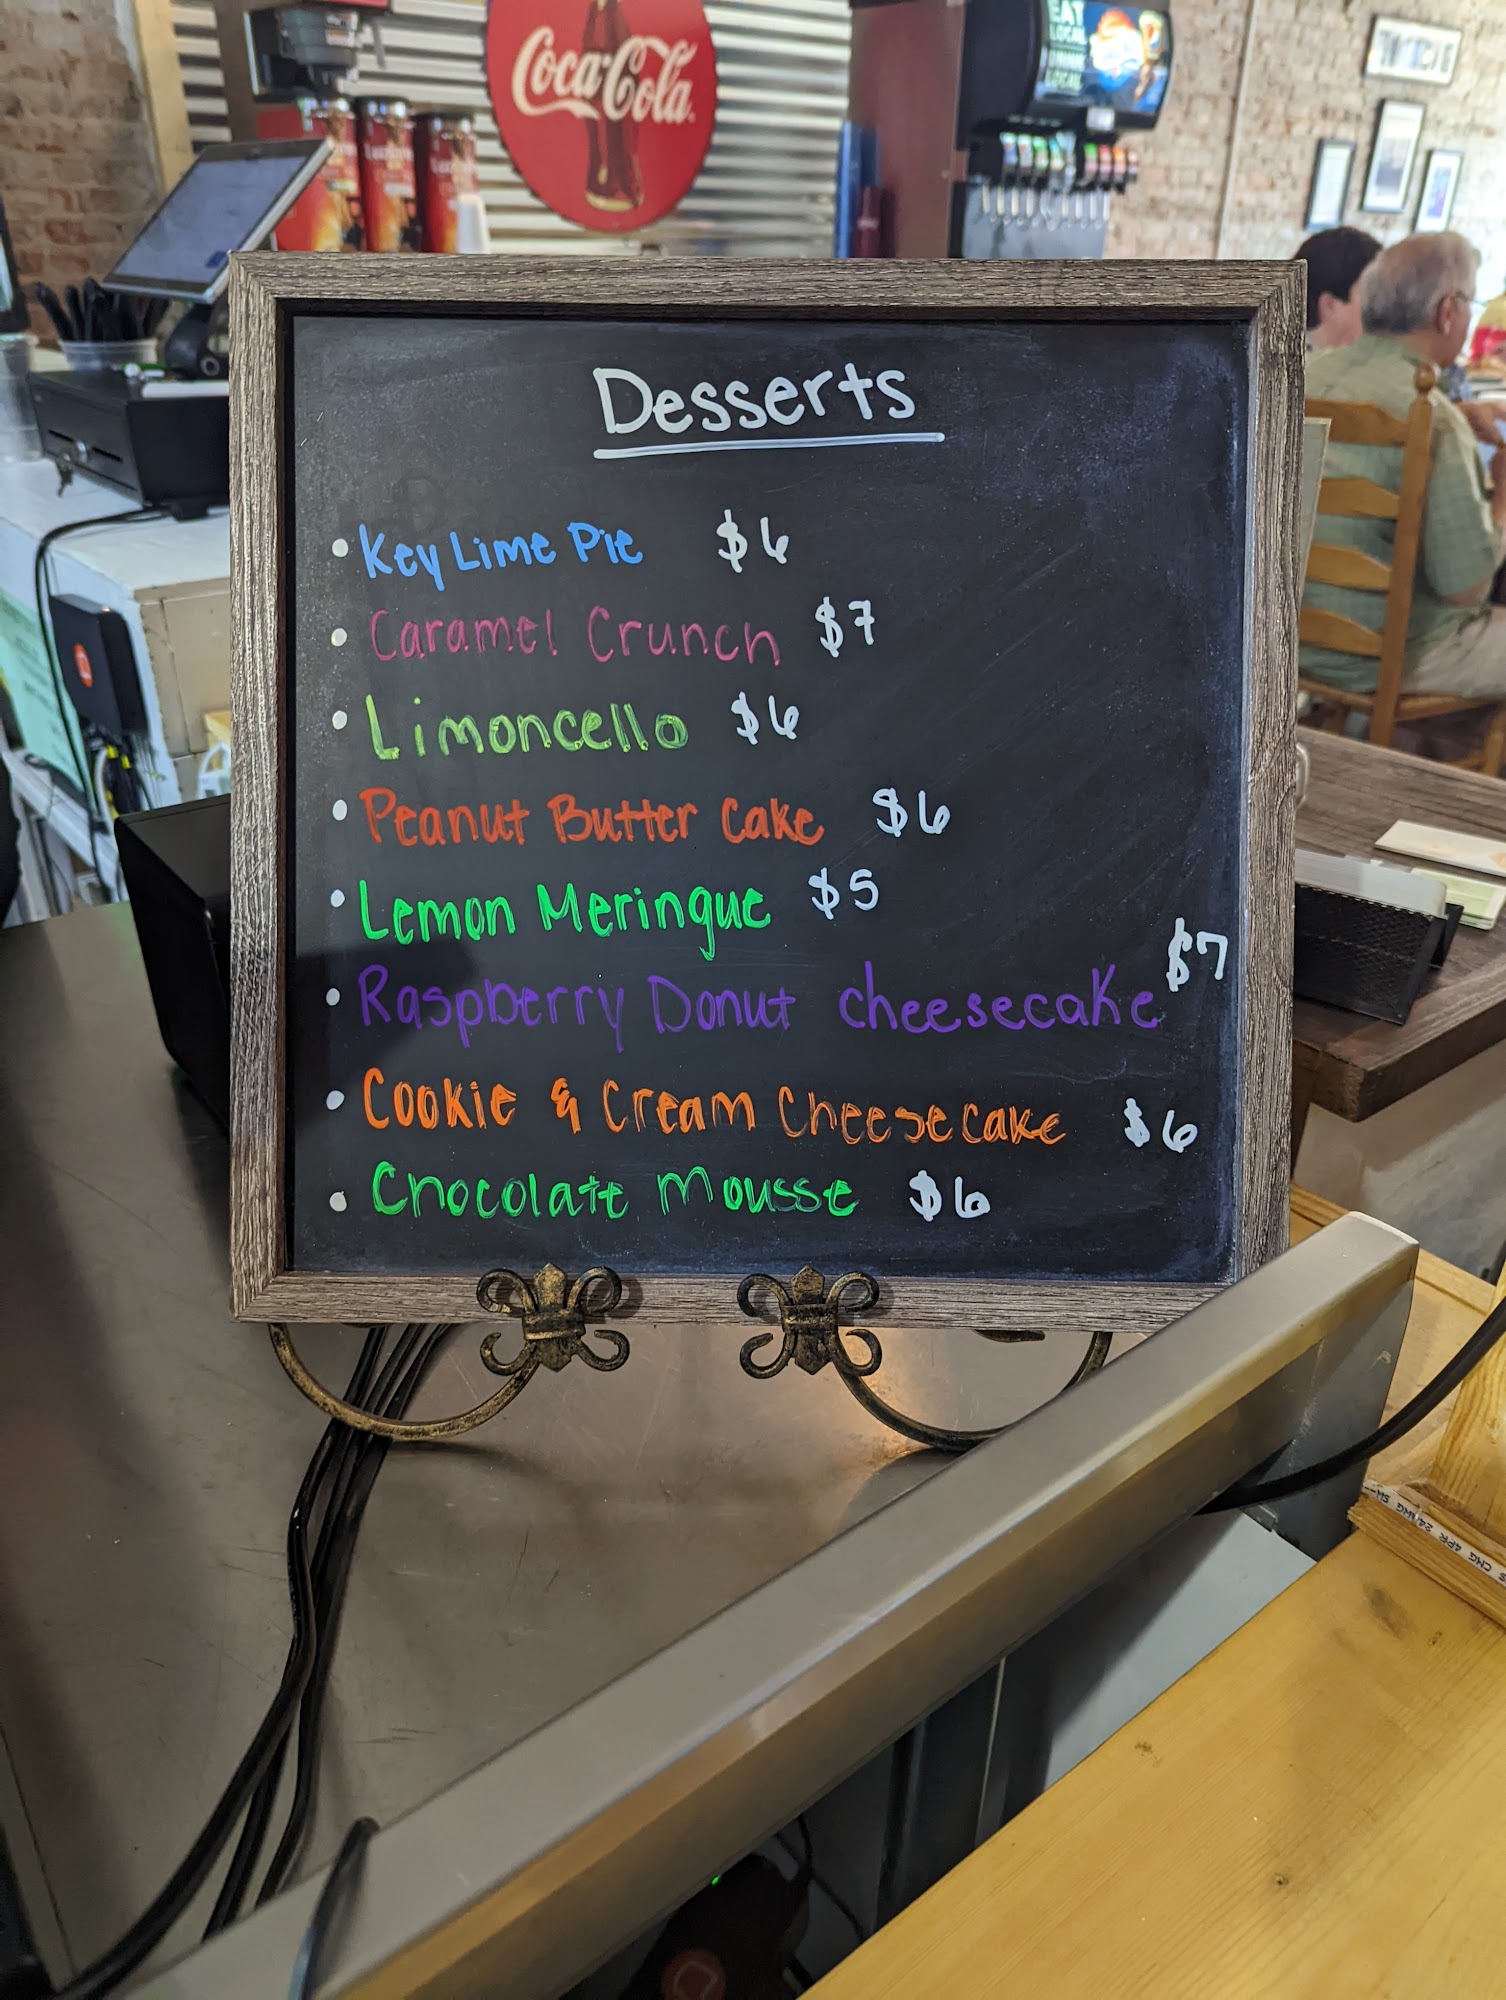 Coca-Cola
EAT
LOCAL
DRINK
LOCAL
Desserts
• Key Lime Pie $6
• Caramel Crunch $7
• Limoncello $6
• Peanut Butter Cake $6
• Lemon Meringue $5
• Raspberry Donut Cheesecake $7
• Cookie & Cream Cheesecake $6
• Chocolate Mousse $6